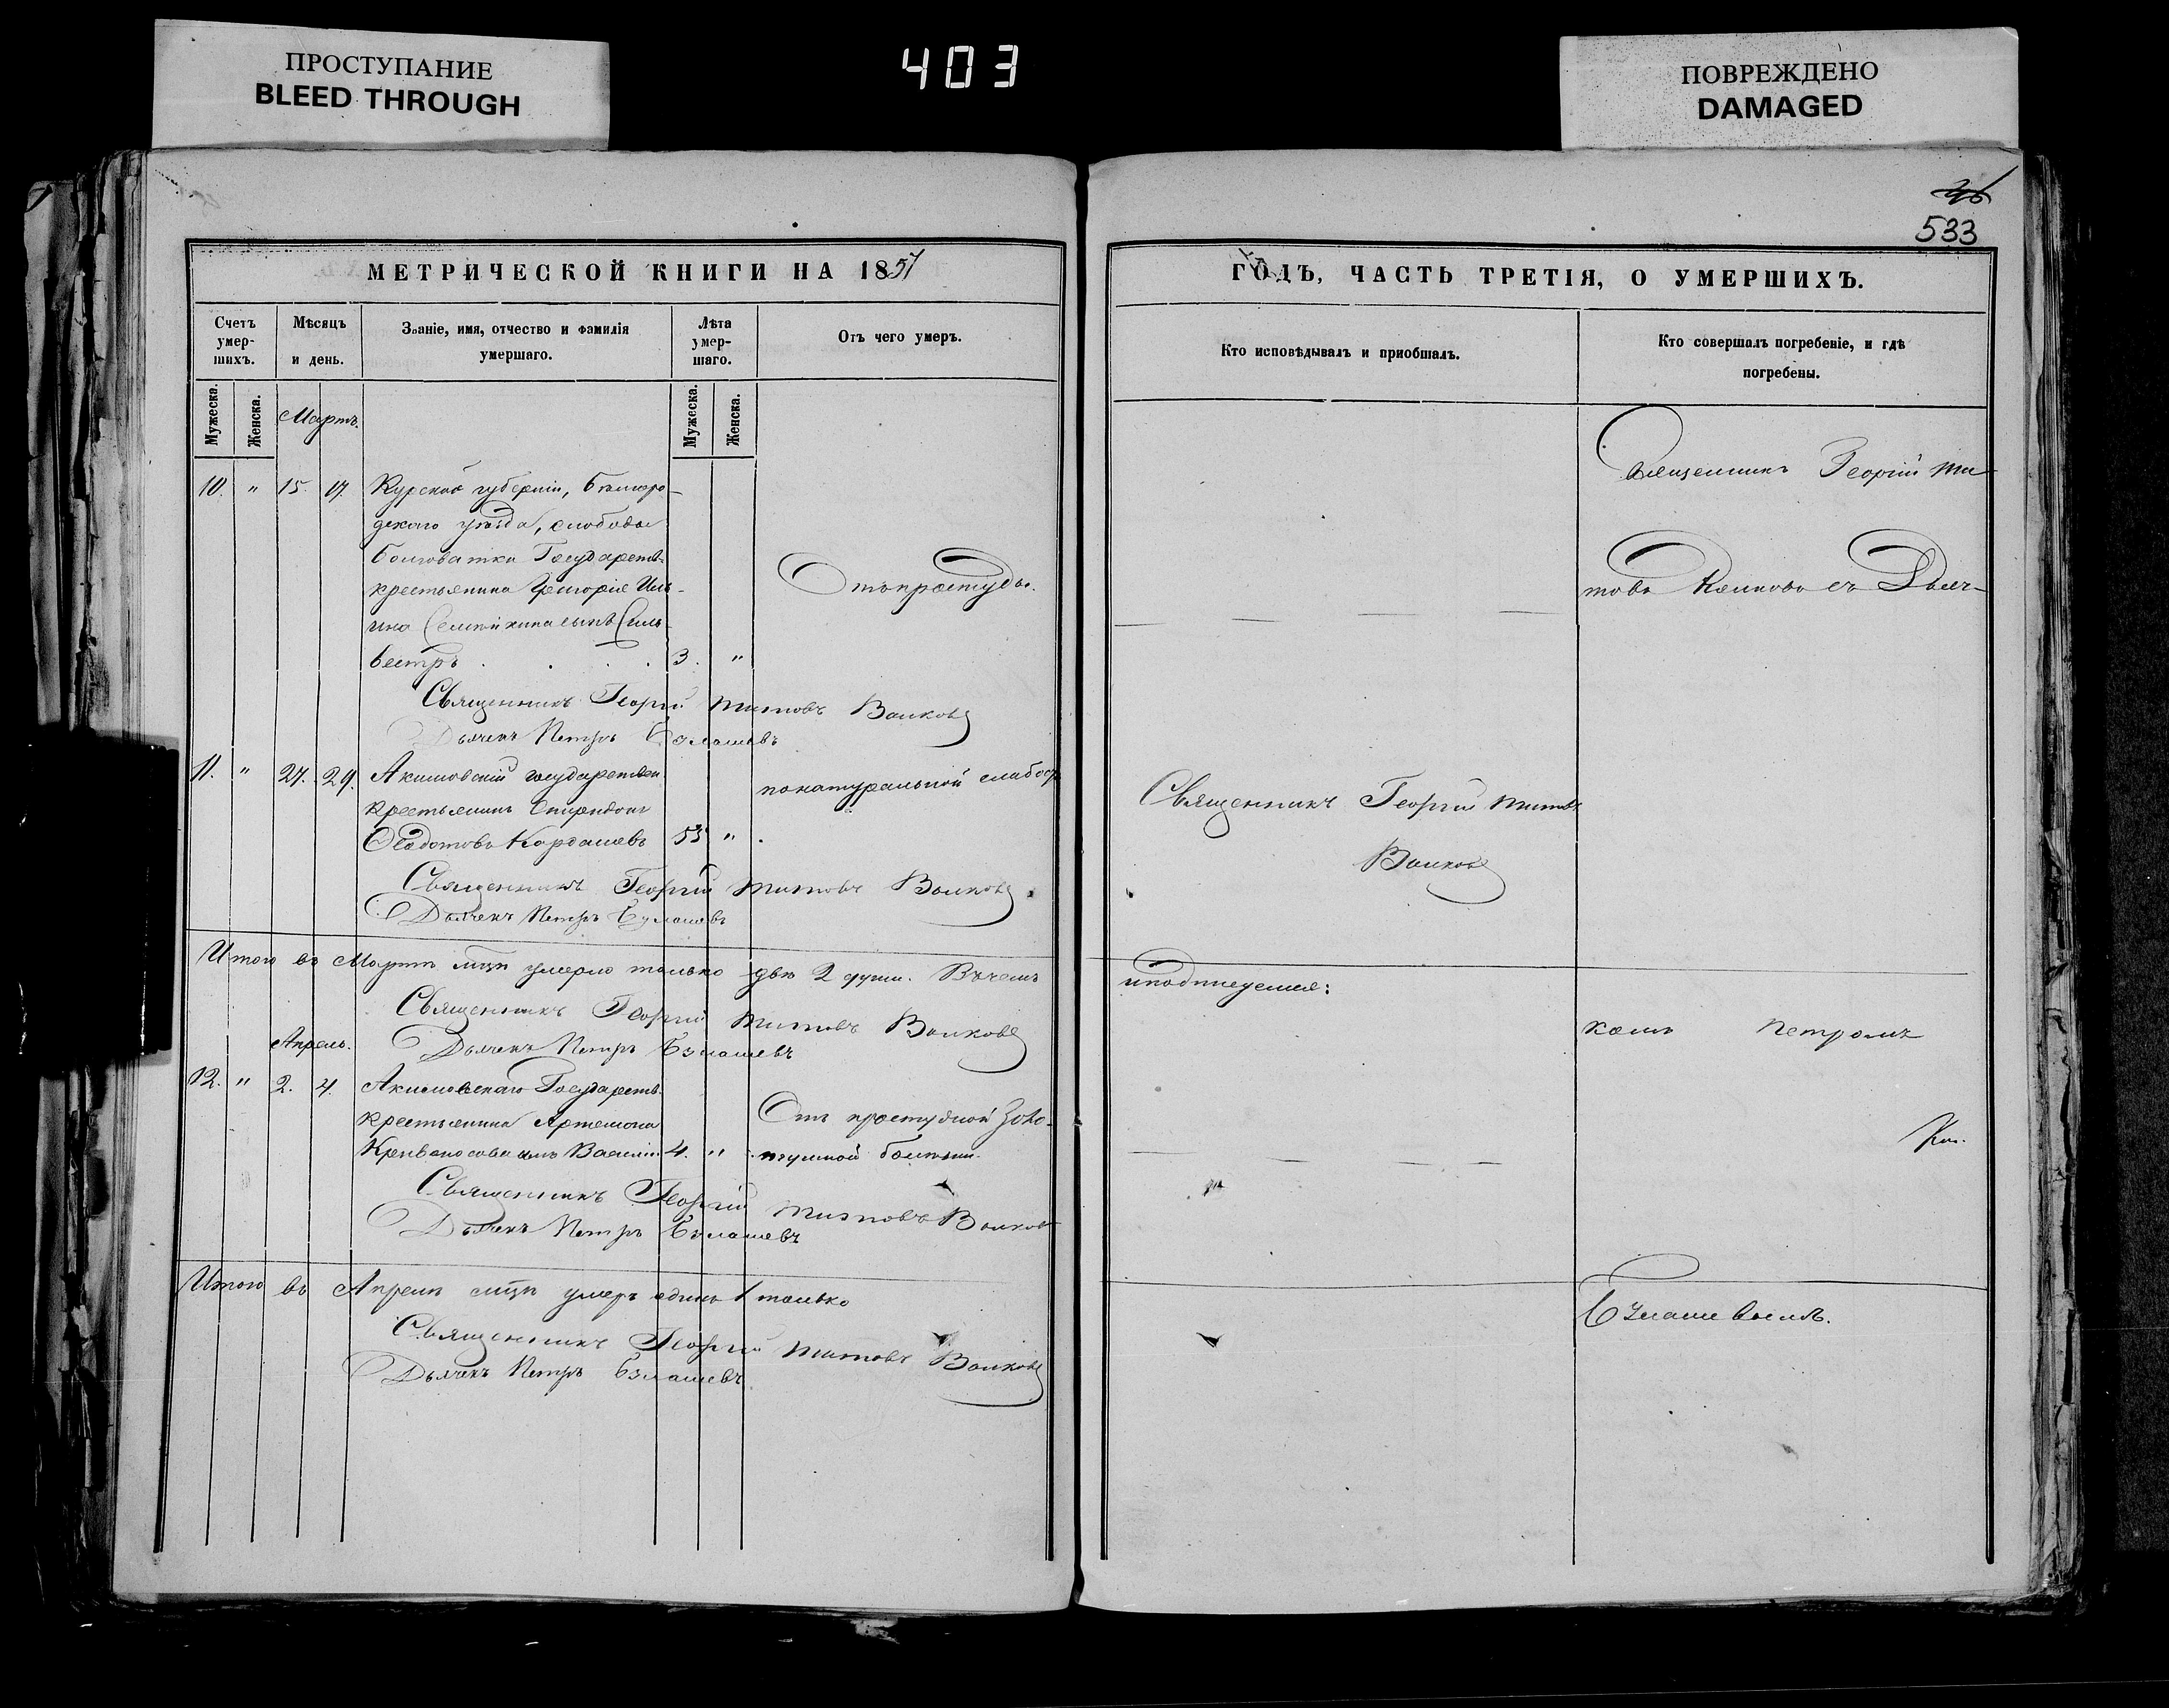 ПРОСТУПАНИЕ
BLEED THROUGH
403
ПОВРЕЖДЕНО
DAMAGED
533
МЕТРИЧЕСКОЙ КНИГИ НА 1857
Счетъ умер-шихъ.
Мѣсяцъ и день.
Званіе, имя, отчество и фамилія умершаго.
Лѣта умер-шаго.
Отъ чего умеръ.
Мужеска.
Женска.
Мужеска.
Женска.
Мартъ.
10. " 15. 17. Курской губерніи, Бѣлгоро-
дскаго уѣзда, слободы
Болховатки Государств-
крестьянина Григорія Иль-
ина сынъ Силь-
вестръ . . . . 3. "
Отъ простуды.
Священникъ Георгій Титовъ Волковъ
Дьячекъ Петръ
11. " 27. 29. Акимовскій государствен
крестьянинъ Спиридонъ
Ѳедотовъ Кордашевъ 55 " .
по натуральной слабос
Священникъ Георгій Титовъ Волковъ
Дьячекъ Петръ
Итого въ Мартѣ мцѣ умерло только двѣ 2 души. Въ чемъ
Священникъ Георгій Титовъ Волковъ
Дьячекъ Петръ
Апрель.
12. " 2. 4. Акимовскаго Государств.
крестьянина Артемона
Кривоносова сынъ Василій 4. "
Отъ простудной золо-
тушной болѣзни.
Священникъ Георгій Титовъ Волковъ
Дьячекъ Петръ
Итого въ Апрелѣ мцѣ умеръ одинъ 1 только
Священникъ Георгій Титовъ Волковъ
Дьячекъ Петръ
ГОДЪ, ЧАСТЬ ТРЕТІЯ, О УМЕРШИХЪ.
Кто исповѣдывалъ и пріобщалъ.
Кто совершалъ погребеніе, и гдѣ погребены.
Священникъ Георгій Ти-
товъ Волковъ съ Дьяч-
Священникъ Георгій Титовъ
Волковъ
и подпишемся:
комъ Петромъ